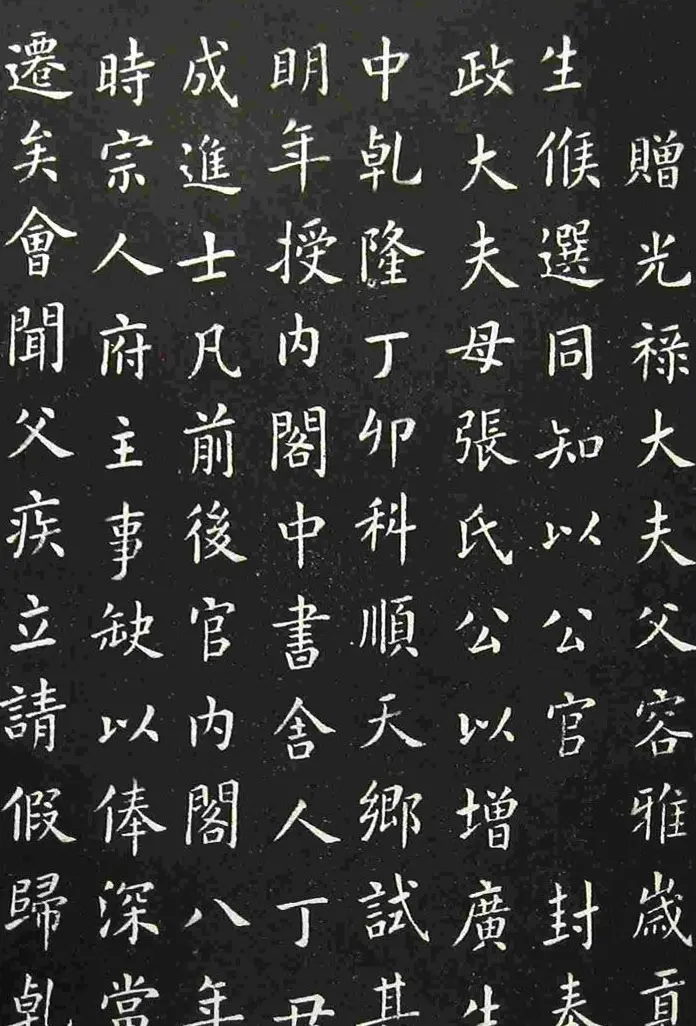 贈光禄大夫父容雅歲貢
生候選同知以公官 封奉
政大夫母張氏公以增廣生
中乹隆丁卯科順天鄉試其
明年授内閣中書舍人丁丑
成進士凡前後官内閣八年
時宗人府主事缺以俸深當
遷矣會聞父疾立請假歸乹